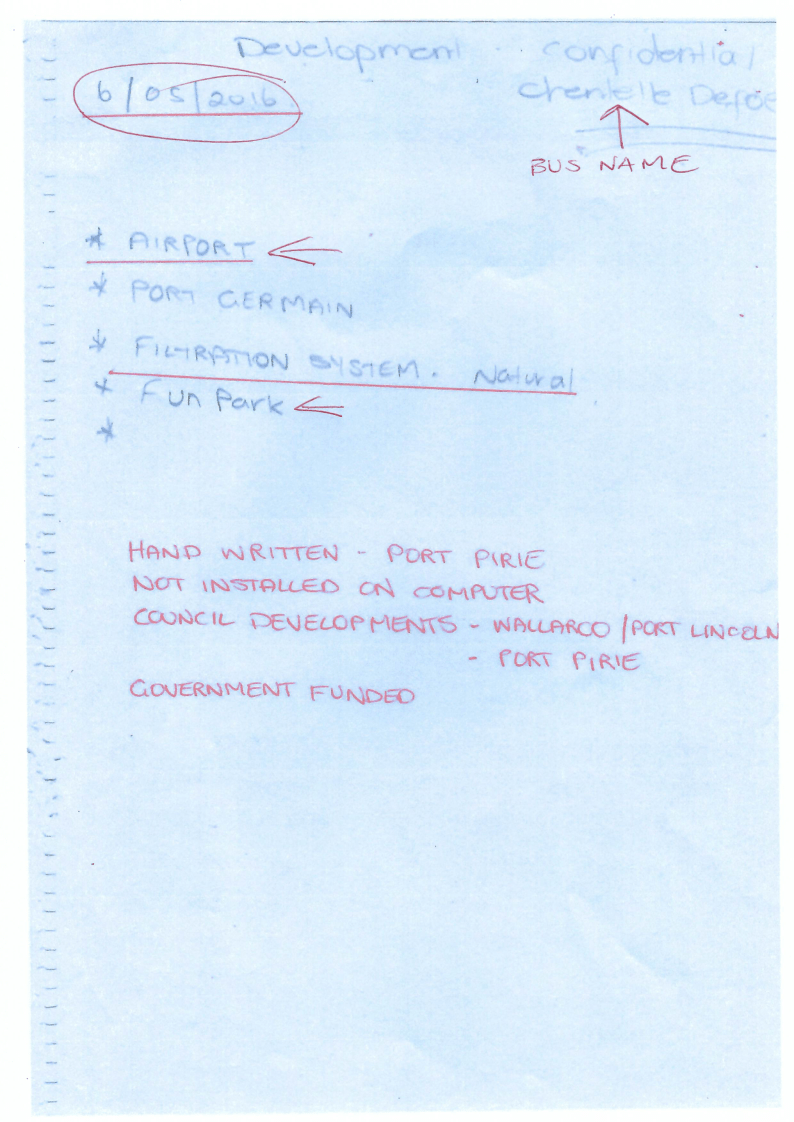 Development Confidential
6/05/2016 Chentelle Defoe
BUS NAME
* AIRPORT
* PORT GERMAIN
* FILTRATION SYSTEM. Natural
* Fun Park
*
HAND WRITTEN - PORT PIRIE
NOT INSTALLED ON COMPUTER
COUNCIL DEVELOPMENTS - WALLAROO / PORT LINCOLN
- PORT PIRIE
GOVERNMENT FUNDED